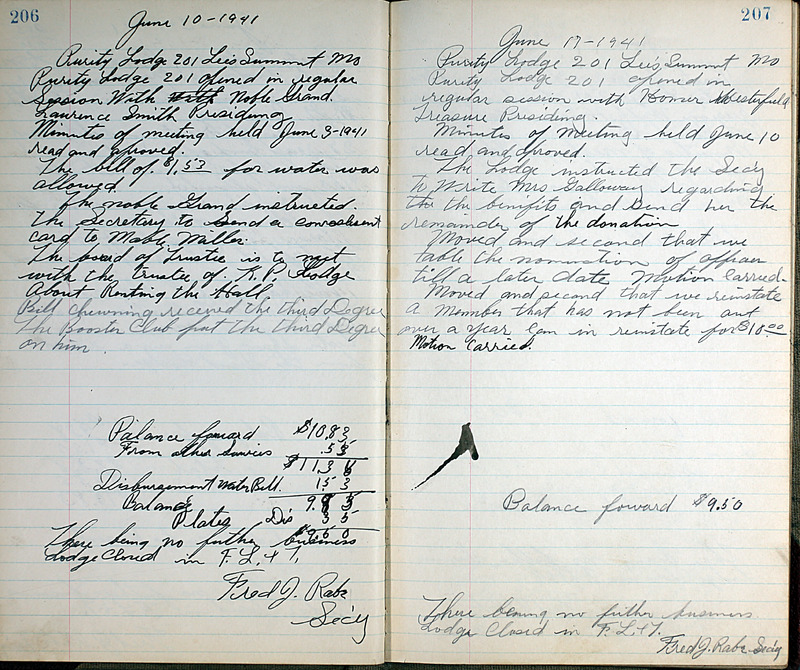 206
June 10-1941
Purity Lodge 201 Lee's Summit Mo
Purity Lodge 201 opened in regular
session With Noble Grand.
Laurence Smith Presiding
Minutes of meeting held June 3-1941
read and aproved.
The bill of. $1.53 for water was
allowed
The noble Grand instructed.
the Secretary to send a
card to Mable Miller.
The board of Trustee is to met
with the trustee of. K. P. Lodge
About Renting the Hall
Bill Chewning receved the third Degree
The Booster Club put the third Degree
on him.
Balance foward $10.83
From other sources .53
$11.36
Disburgement Water Bill. 1.53
Balance 9.85
Plates Dis 35
$9.50
There being no futher business
Lodge Closed in F. L. & T.
Fred J. Rabe
Sec'y
207
June 17-1941
Purity Lodge 201 Lee's Summit Mo
Purity Lodge 201 opened in
regular session with Homer
Treasure Presiding.
Minutes of Meeting held June 10
read and aproved.
The Lodge instructed the Sec'y
to Write Mrs Galloway regarding
the benefits and send her the
remainder of the donation
Moved and second that we
table the nomination of officer
till a later date Motion Carried-
Moved and second that we reinstate
a member that has not been out
over a year Can in reinstate for $10.00
Motion Carried.
Balance foward $9.50
There being no futher business
Lodge Closed in F. L & T.
Fred J. Rabe Sec'y